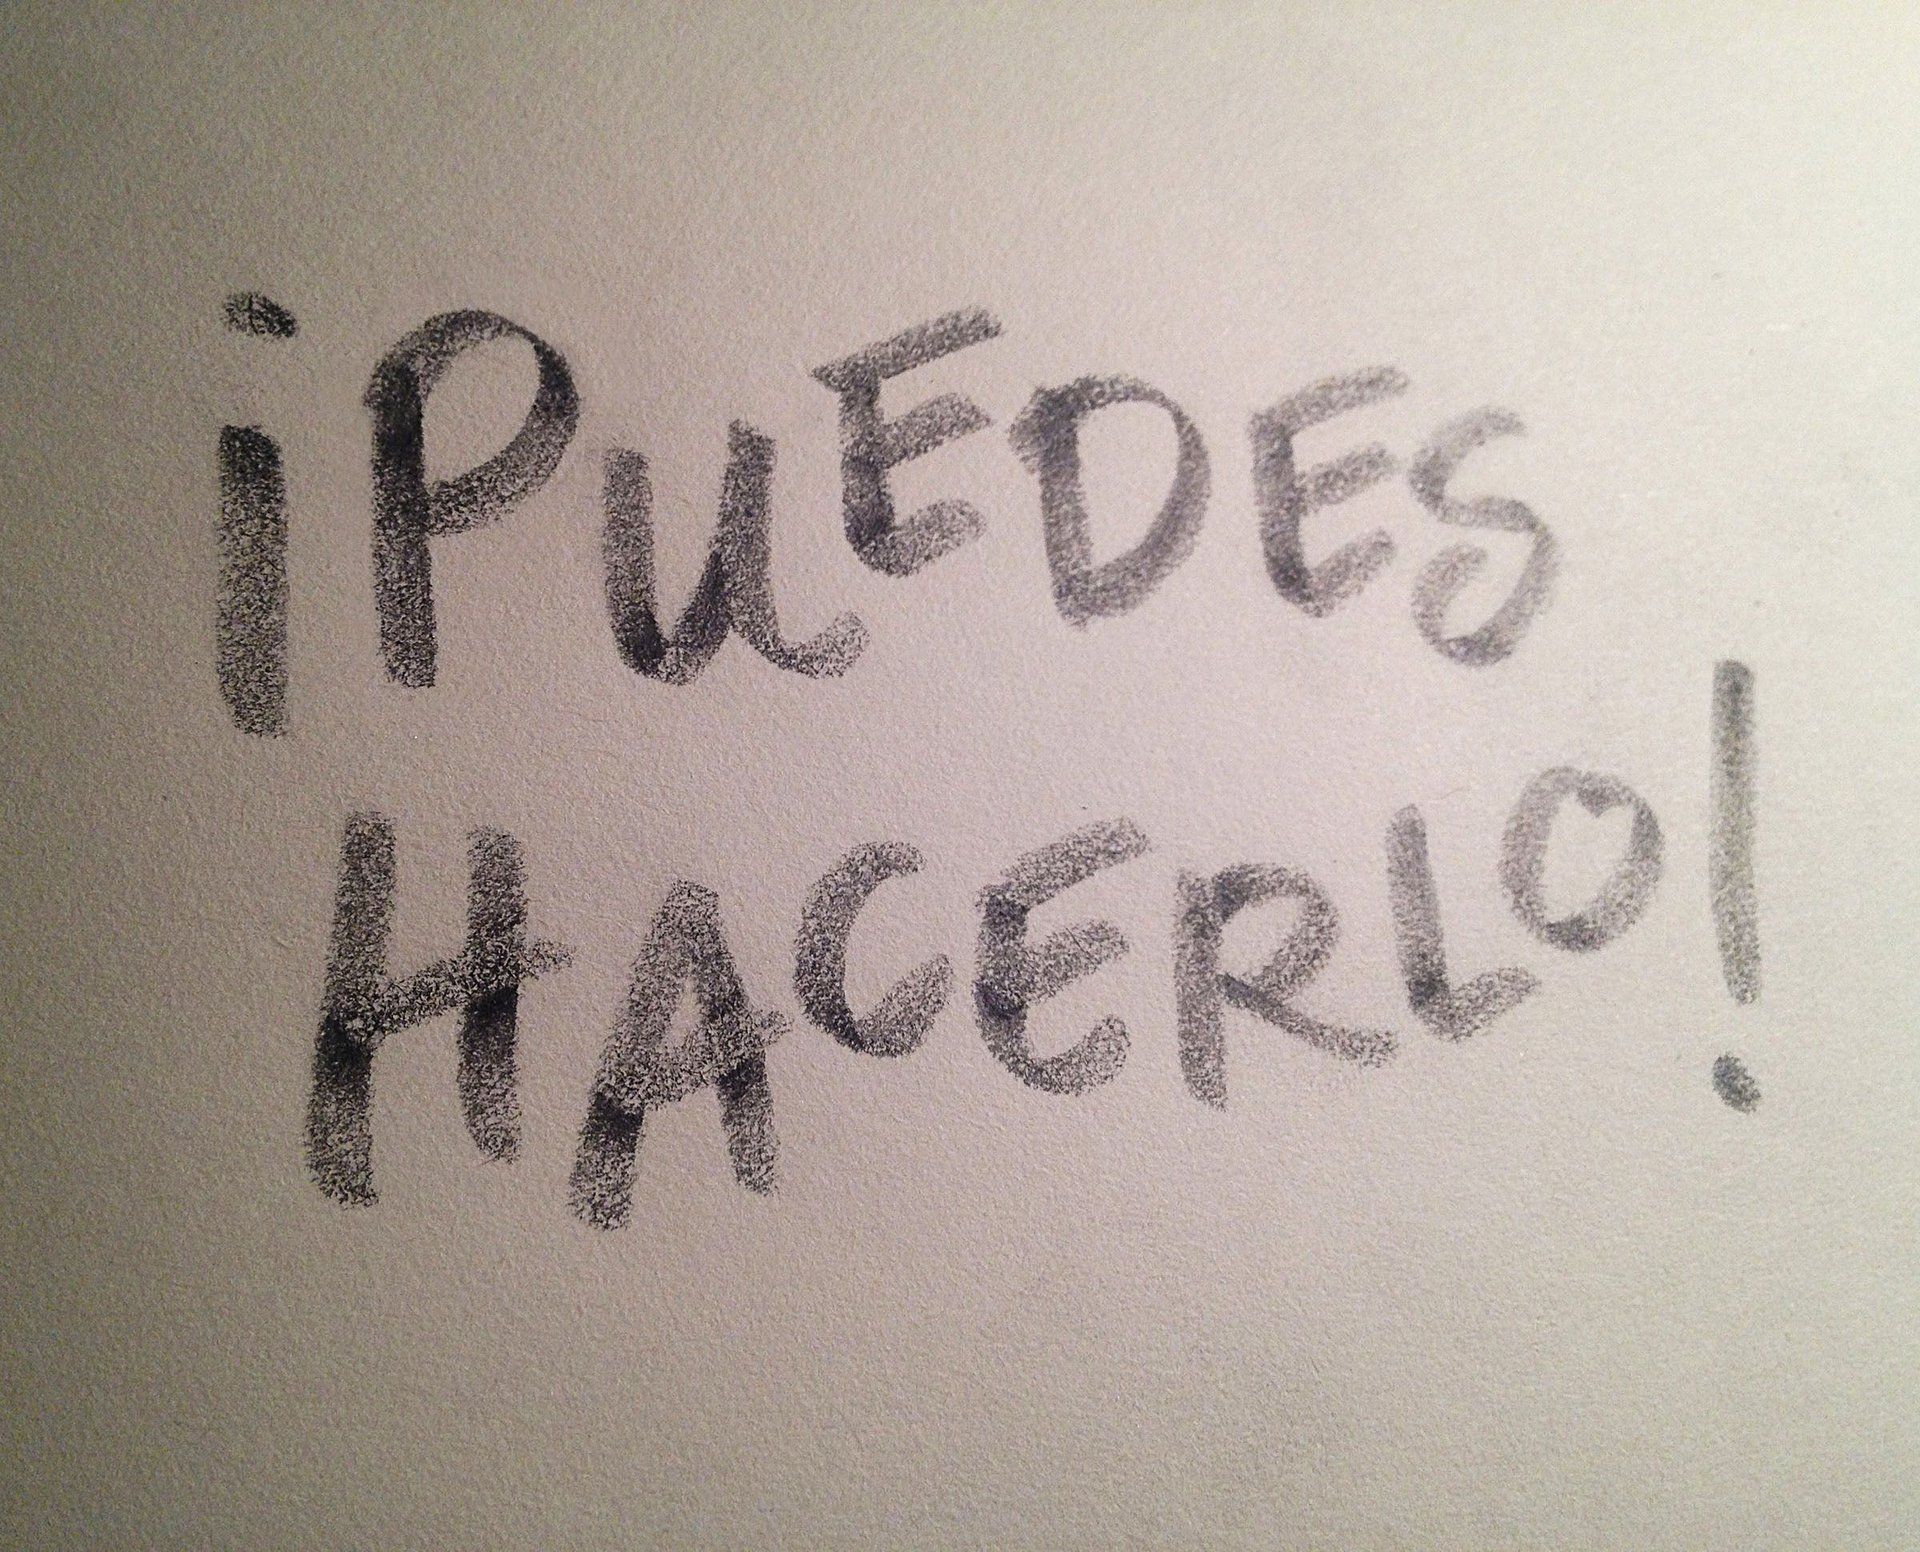 ¡PUEDES
HACERLO!